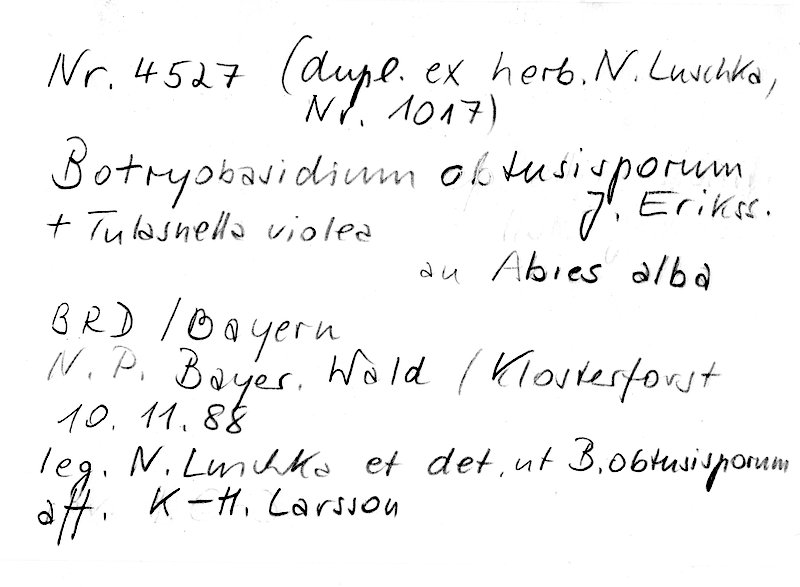 Nr. 4527 (dupl. ex herb. N. Luschka,
Nr. 1017)
Botryobasidium obtusisporum
J. Erikss.
+ Tulasnella violea
an Abies alba
BRD / Bayern
N. P. Bayer. Wald / Klosterforst
10. 11. 88
leg. N. Luschka et det. ut B. obtusisporum
aff. K-H. Larsson